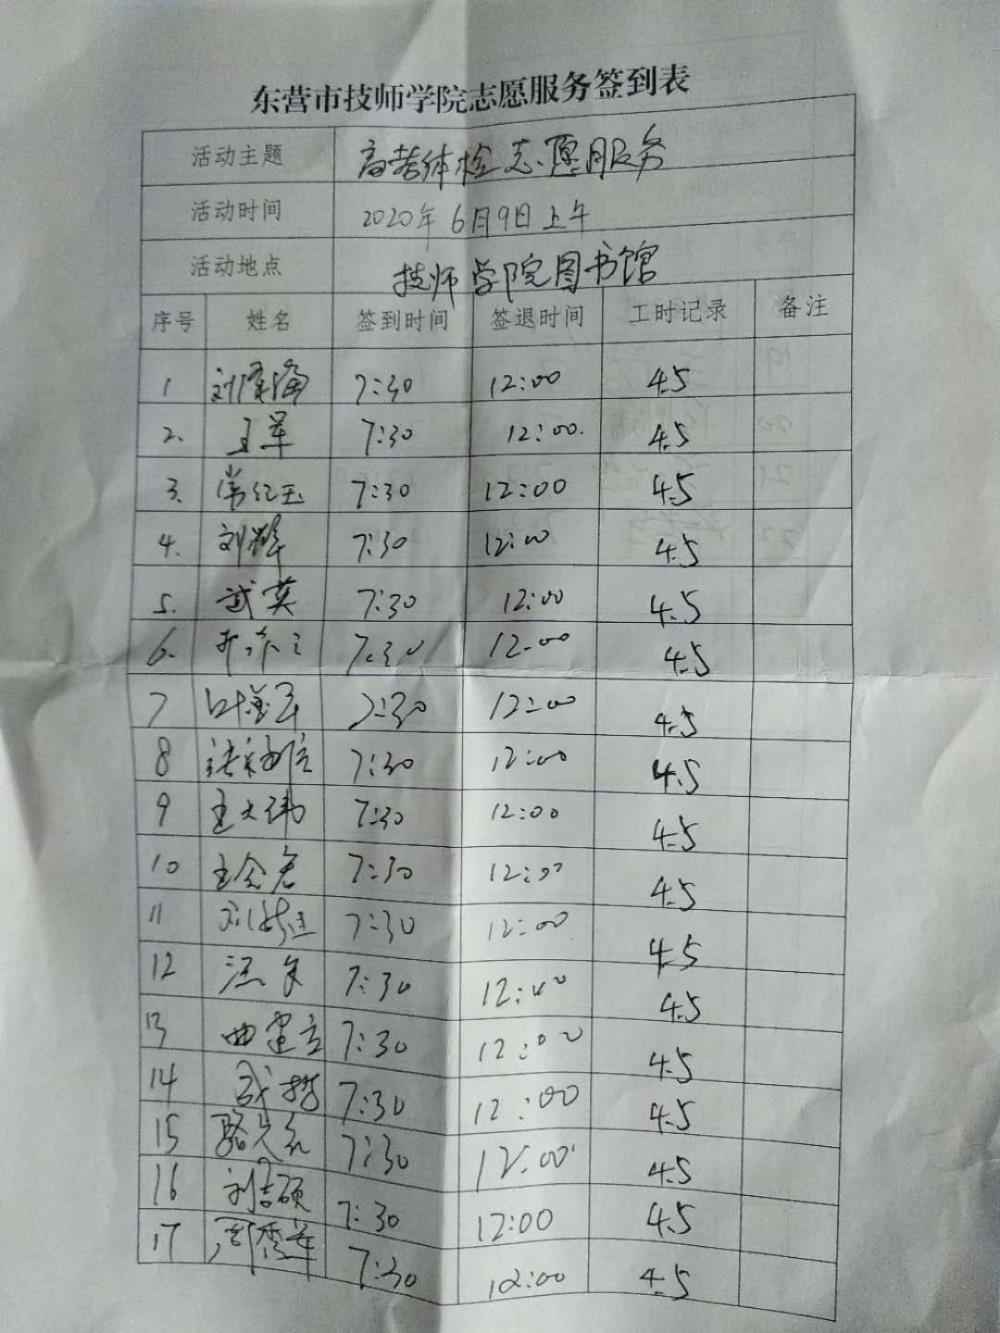 东营市技师学院志愿服务签到表
活动主题 高考体检志愿服务
活动时间 2020年6月9日上午
活动地点 技师学院图书馆
序号 姓名 签到时间 签退时间 工时记录 备注
1 7:30 12:00 4.5
2. 王军 7:30 12:00. 4.5
3. 常红玉 7:30 12:00 4.5
4. 刘辉 7:30 12:00 4.5
5. 武英 7:30 12:00 4.5
6. 7:30 12:00 4.5
7 7:30 12:00 4.5
8 7:30 12:00 4.5
9 王大伟 7:30 12:00 4.5
10 7:30 12:00 4.5
11 7:30 12:00 4.5
12 7:30 12:00 4.5
13 曲建立 7:30 12:00 4.5
14 7:30 12:00 4.5
15 7:30 12:00 4.5
16 刘吉硕 7:30 12:00 4.5
17 周秀军 7:30 12:00 4.5